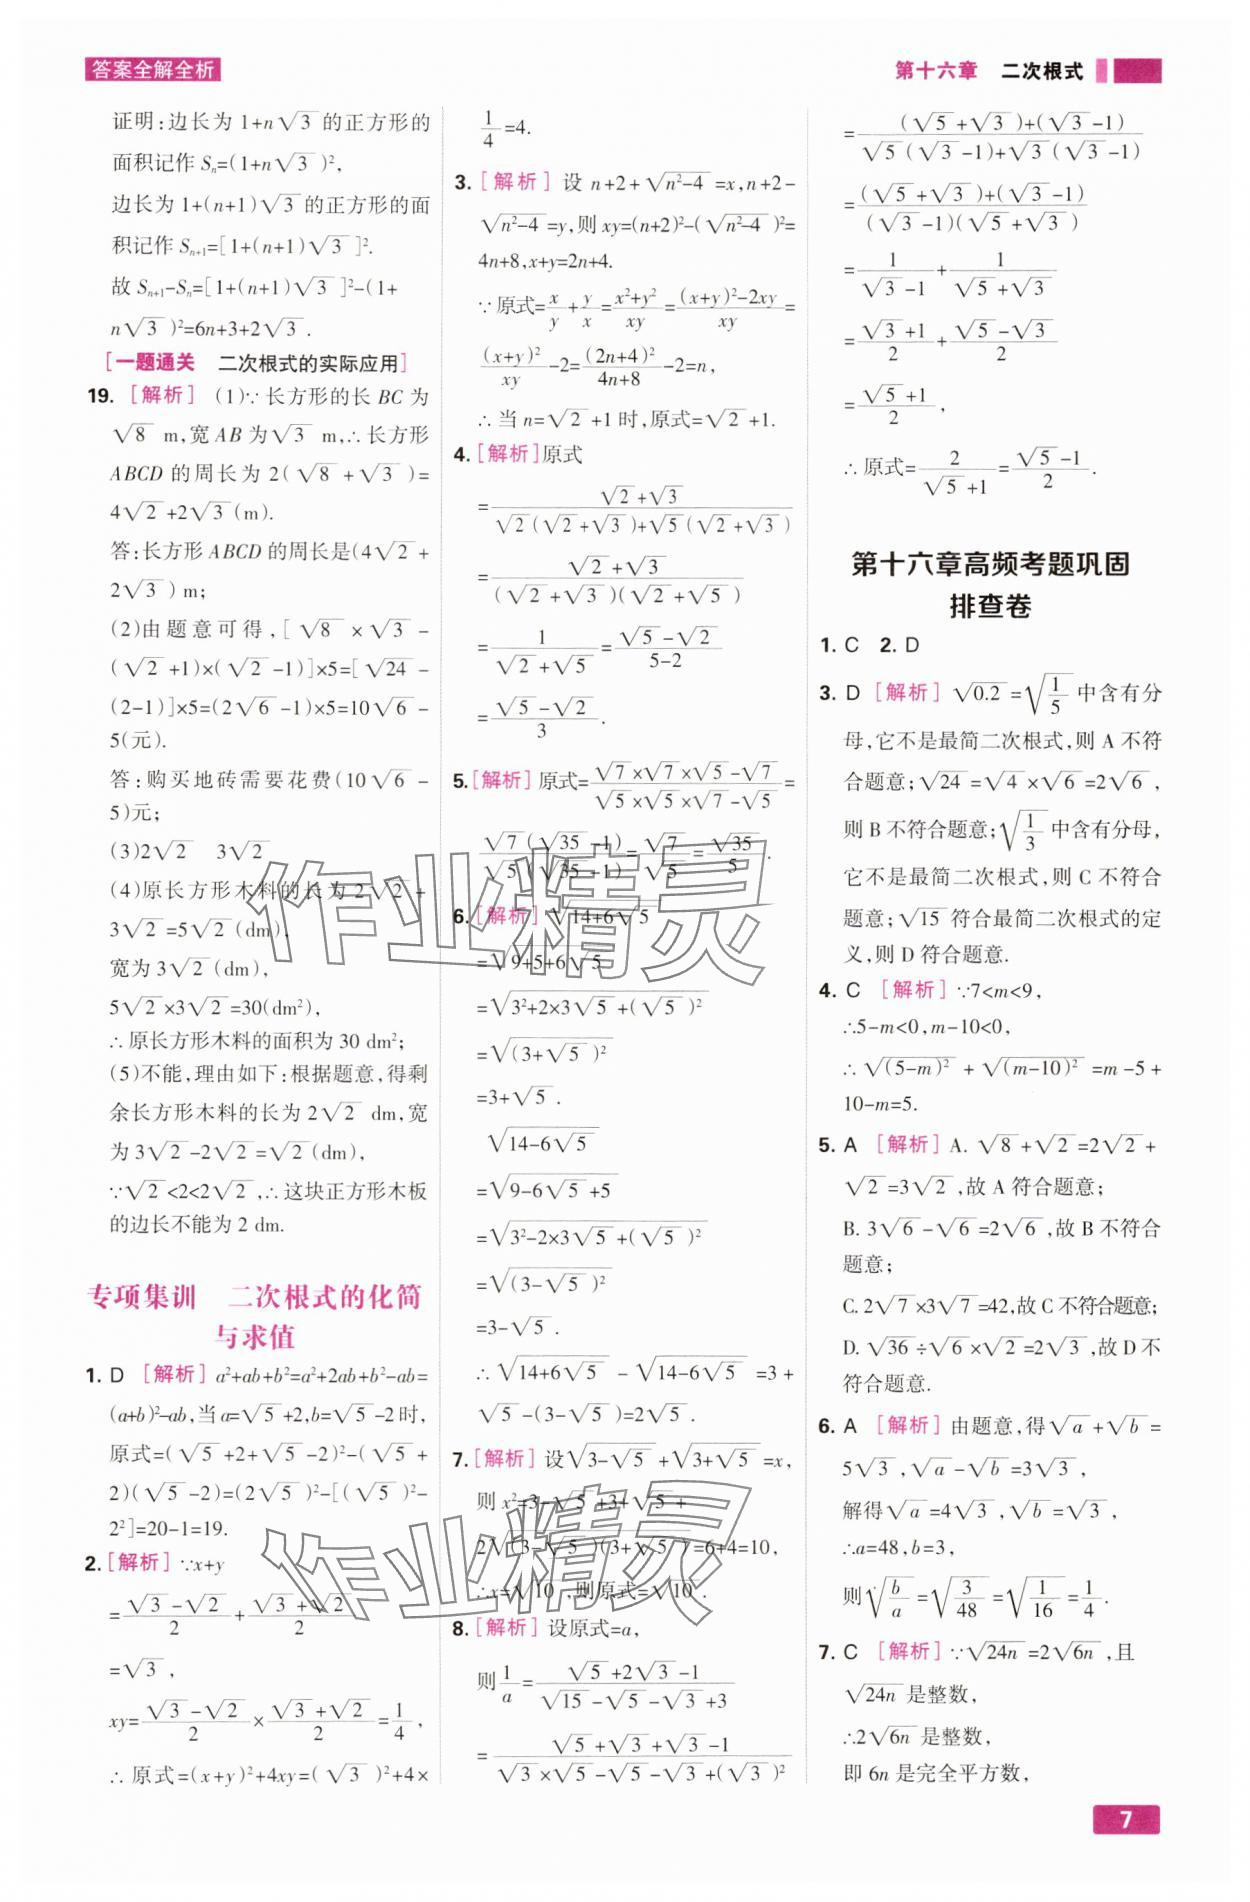 答案全解全析
第十六章 二次根式
证明:边长为 1+n√3 的正方形的
面积记作 Sₙ=(1+n√3)²,
边长为 1+(n+1)√3 的正方形的面
积记作 Sₙ₊₁=[1+(n+1)√3]².
故 Sₙ₊₁-Sₙ=[1+(n+1)√3]²-(1+
n√3)²=6n+3+2√3.
[一题通关 二次根式的实际应用]
19. [解析] (1)∵长方形的长 BC 为
√8 m,宽 AB 为√3 m,∴长方形
ABCD 的周长为 2(√8+√3)=
4√2+2√3(m).
答:长方形 ABCD 的周长是(4√2+
2√3) m;
(2)由题意可得,[√8×√3-
(√2+1)×(√2-1)]×5=[√24-
(2-1)]×5=(2√6-1)×5=10√6-
5(元).
答:购买地砖需要花费(10√6-
5)元;
(3)2√2 3√2
(4)原长方形木料的长为 2√2+
3√2=5√2(dm),
宽为 3√2(dm),
5√2×3√2=30(dm²),
∴原长方形木料的面积为 30 dm²;
(5)不能,理由如下:根据题意,得剩
余长方形木料的长为 2√2 dm,宽
为 3√2-2√2=√2(dm),
∵√2<2<2√2,∴这块正方形木板
的边长不能为 2 dm.
专项集训 二次根式的化简
与求值
1. D [解析] a²+ab+b²=a²+2ab+b²-ab=
(a+b)²-ab,当 a=√5+2,b=√5-2 时,
原式=(√5+2+√5-2)²-(√5+
2)(√5-2)=(2√5)²-[(√5)²-
2²]=20-1=19.
2. [解析] ∵x+y
=(√3-√2)/2+(√3+√2)/2
=√3,
xy=(√3-√2)/2×(√3+√2)/2=1/4,
∴原式=(x+y)²+4xy=(√3)²+4×
1/4=4.
3. [解析] 设 n+2+√(n²-4)=x,n+2-
√(n²-4)=y,则 xy=(n+2)²-(√(n²-4))²=
4n+8,x+y=2n+4.
∵原式=x/y+y/x=(x²+y²)/xy=((x+y)²-2xy)/xy=
(x+y)²/xy-2=(2n+4)²/(4n+8)-2=n,
∴当 n=√2+1 时,原式=√2+1.
4. [解析]原式
=(√2+√3)/(√2(√2+√3)+√5(√2+√3))
=(√2+√3)/((√2+√3)(√2+√5))
=1/(√2+√5)=(√5-√2)/(5-2)
=(√5-√2)/3.
5. [解析] 原式=(√7×√7×√5-√7)/(√5×√5×√7-√5)=
√7(√35-1)/√5(√35-1)=√7/√5=√35/5.
6. [解析] √(14+6√5)
=√(9+5+6√5)
=√(3²+2×3√5+(√5)²)
=√((3+√5)²)
=3+√5.
√(14-6√5)
=√(9-6√5+5)
=√(3²-2×3√5+(√5)²)
=√((3-√5)²)
=3-√5.
∴√(14+6√5)-√(14-6√5)=3+
√5-(3-√5)=2√5.
7. [解析] 设√(3-√5)+√(3+√5)=x,
则 x²=3-√5+3+√5+
2√((3-√5)(3+√5))=6+4=10,
∴x=√10,则原式=√10.
8. [解析] 设原式=a,
则 1/a=(√5+2√3-1)/(√15-√5-√3+3)
=(√5+√3+√3-1)/(√3×√5-√5-√3+(√3)²)
=((√5+√3)+(√3-1))/(√5(√3-1)+√3(√3-1))
=((√5+√3)+(√3-1))/((√3-1)(√5+√3))
=1/(√3-1)+1/(√5+√3)
=(√3+1)/2+(√5-√3)/2
=(√5+1)/2,
∴原式=2/(√5+1)=(√5-1)/2.
第十六章高频考题巩固
排查卷
1. C 2. D
3. D [解析] √0.2=√(1/5)中含有分
母,它不是最简二次根式,则 A 不符
合题意;√24=√4×√6=2√6,
则 B 不符合题意;√(1/3)中含有分母,
它不是最简二次根式,则 C 不符合
题意;√15符合最简二次根式的定
义,则 D 符合题意.
4. C [解析] ∵7<m<9,
∴5-m<0,m-10<0,
∴√((5-m)²)+√((m-10)²)=m-5+
10-m=5.
5. A [解析] A. √8+√2=2√2+
√2=3√2,故 A 符合题意;
B. 3√6-√6=2√6,故 B 不符合
题意;
C. 2√7×3√7=42,故 C 不符合题意;
D. √36÷√6×√2=2√3,故 D 不
符合题意.
6. A [解析] 由题意,得√a+√b=
5√3,√a-√b=3√3,
解得√a=4√3,√b=√3,
∴a=48,b=3,
则√(b/a)=√(3/48)=√(1/16)=1/4.
7. C [解析] ∵√24n=2√6n,且
√24n是整数,
∴2√6n是整数,
即 6n 是完全平方数,
作业精灵
作业精灵
7